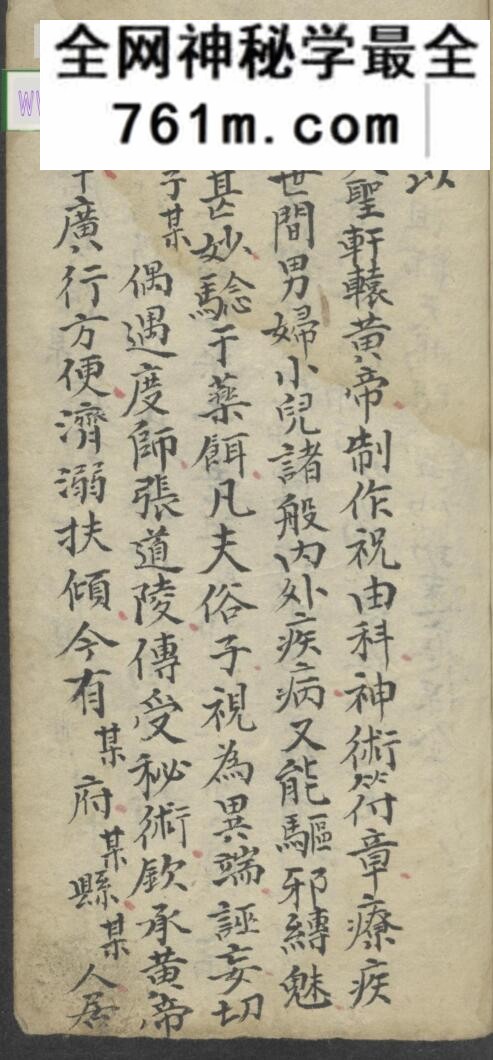 全网神秘学最全
761m.com
W
以
聖軒轅黃帝制作祝由科神術符章療疾
世間男婦小兒諸般内外疾病又能驅邪縛魅
甚妙騐于藥餌凡夫俗子視為異端誣妄切
子某偶遇度師張道陵傳受秘術欽承黃帝
廣行方便濟溺扶傾今有某府某縣某人居